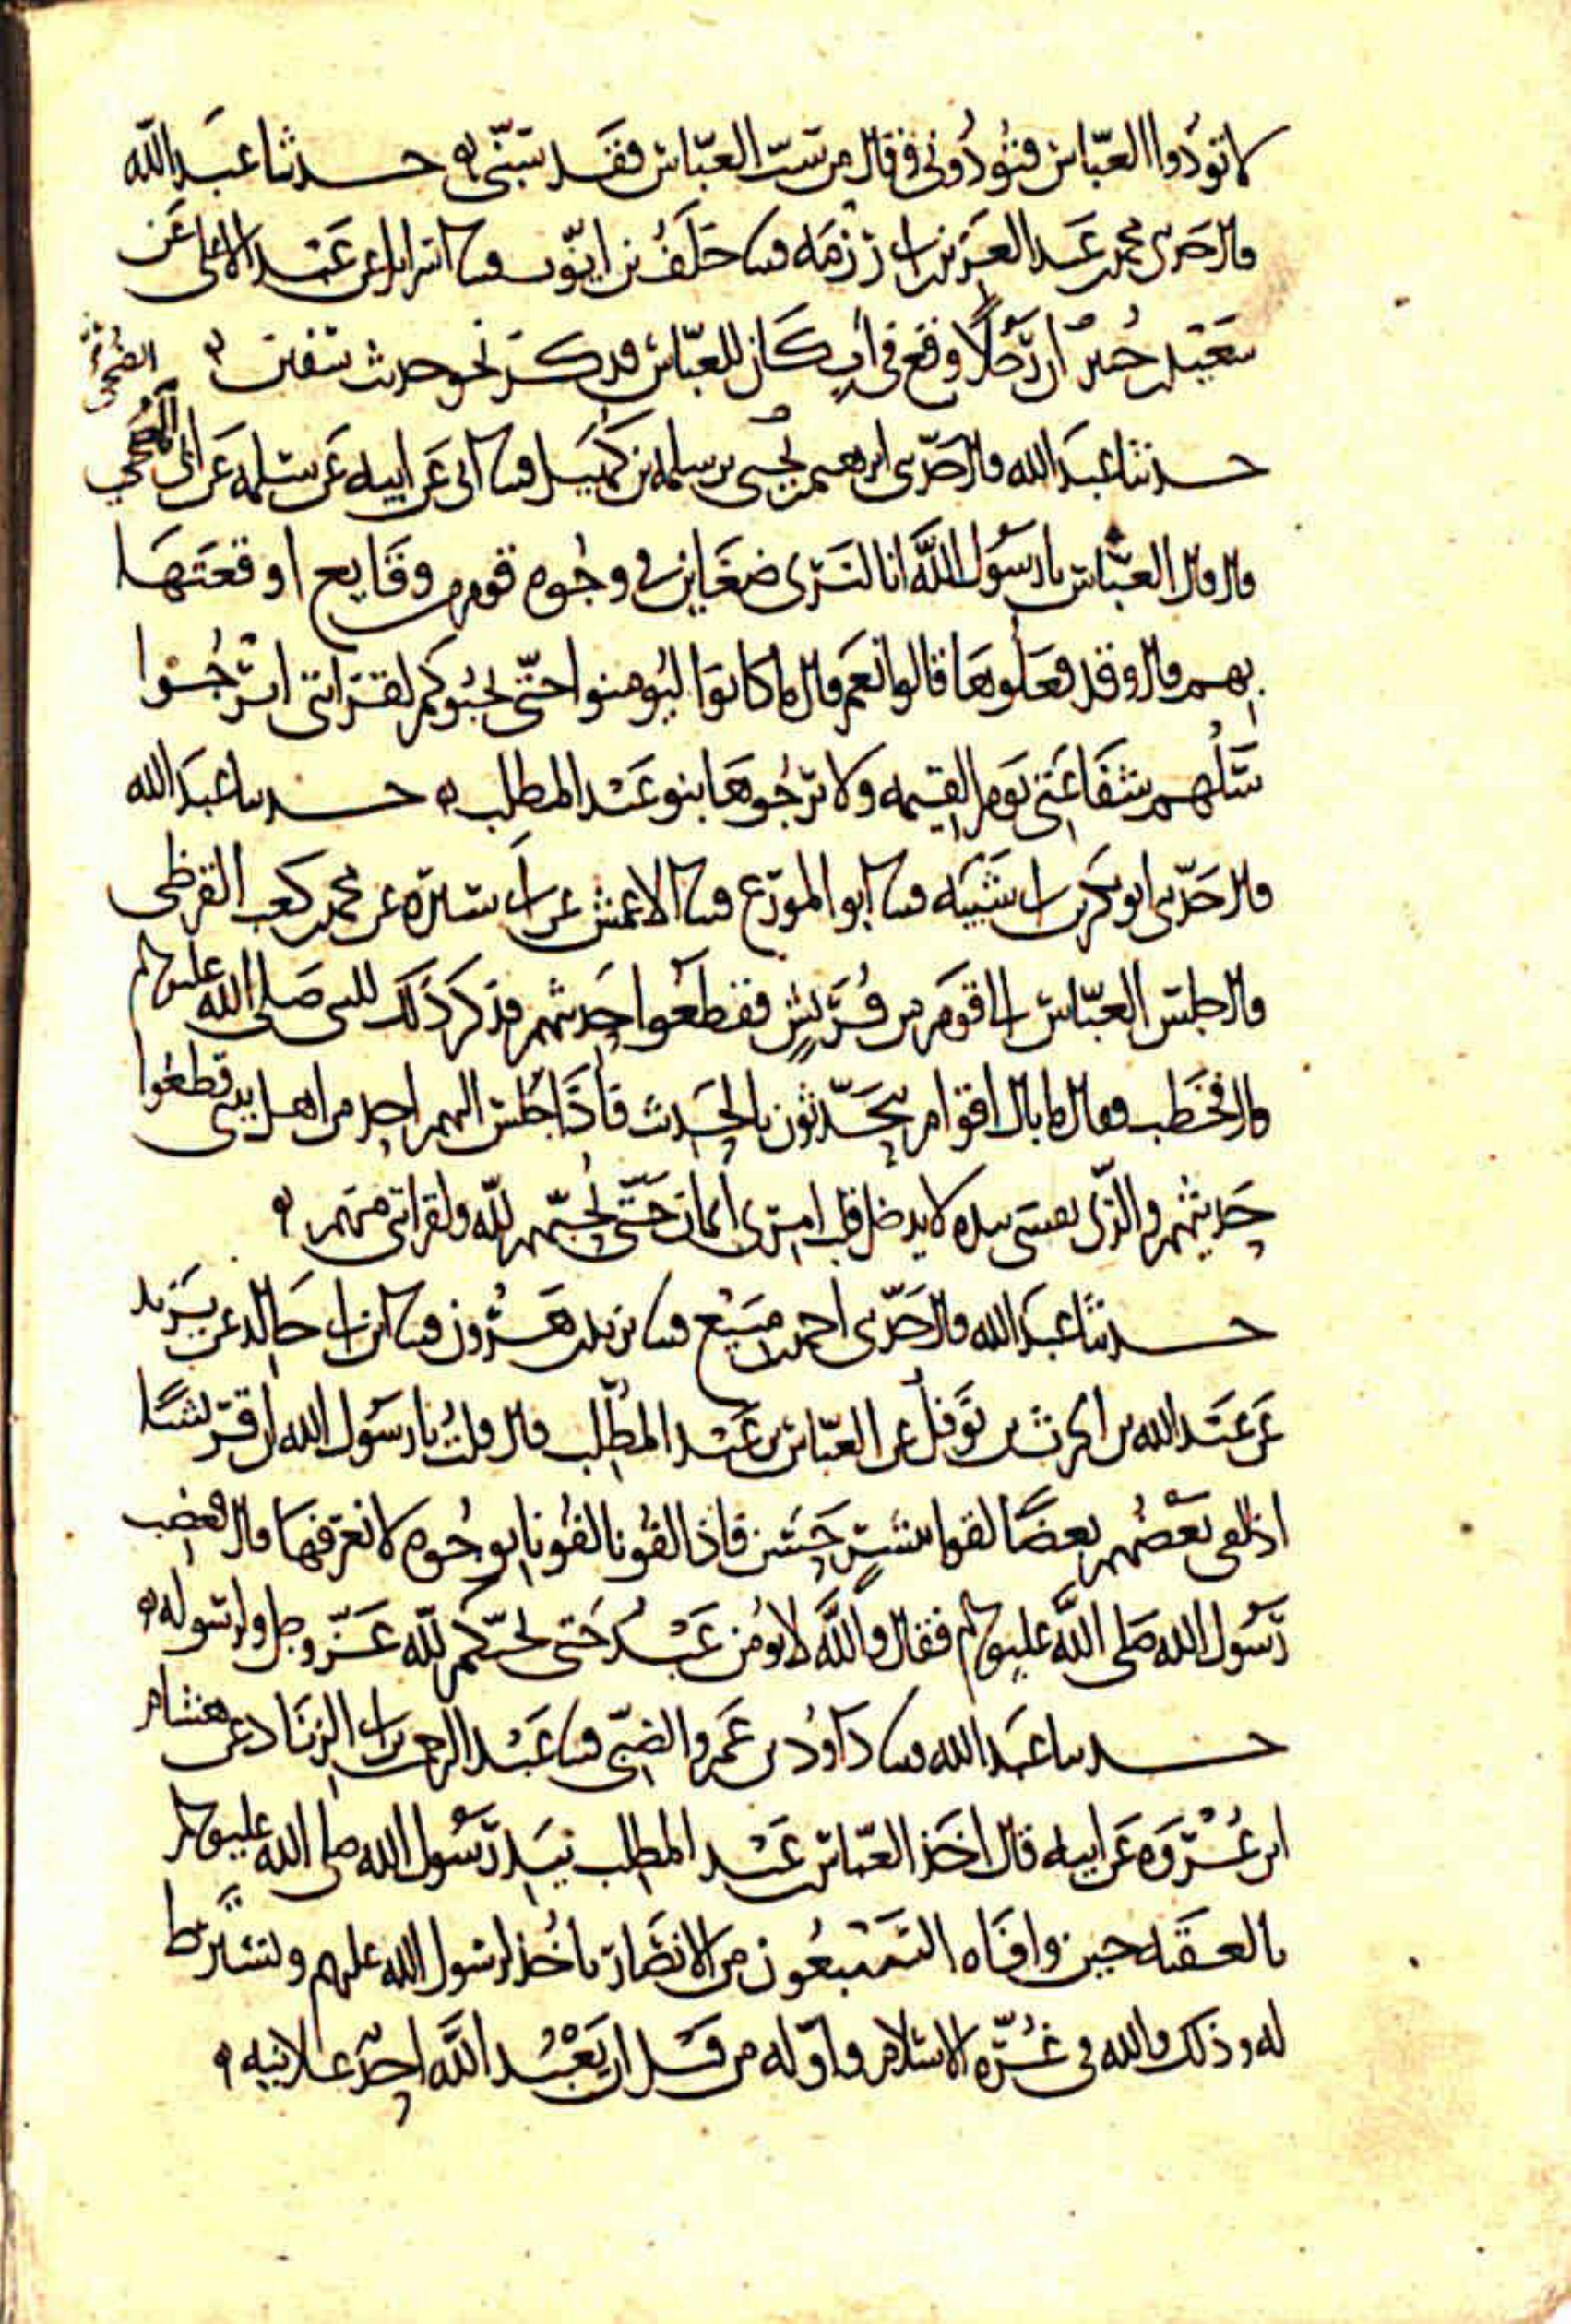 لا تؤذوا العباس فتؤذوني وقال من سب العباس فقد سبني ه حدثنا عبد الله
قال حدثني محمد بن عبد العزيز بن ابي رزمه قثنا خلف بن ايوب قثنا اسرائيل عن عبد الاعلى عن
سعيد بن جبير ان رجلا وقع في اب كان للعباس فذكر نحو حديث سفين ه الضحى
حدثنا عبد الله قال حدثني ابرهيم بن يحيى بن سلمه بن كهيل قثنا ابي عن ابيه عن سلمه عن ابي الضحى
قال قال العباس يا رسول الله انا لنرى ضغاين في وجوه قوم من وقايع اوقعتها
بهم قال وقد فعلوها قالوا نعم قال ما كانوا ليؤمنوا حتى يحبوكم لقرابتي اترجوا
سلهم شفاعتي يوم القيمه ولا ترجوها بنو عبد المطلب ه حدثنا عبد الله
قال حدثني ابو بكر بن ابي شيبه قثنا ابو المورع قثنا الاعمش عن ابي سبره عن محمد بن كعب القرظي
قال جلس العباس الى قوم من قريش فقطعوا حديثهم فذكر ذلك للنبي صلى الله عليه وسلم
قال فخطب فقال ما بال اقوام يتحدثون بالحديث فاذا جلس اليهم احد من اهل بيتي قطعوا
حديثهم والذي نفسي بيده لا يدخل قلب امرئ ايمان حتى يحبهم لله ولقرابتي منهم ه
حدثنا عبد الله قال حدثني احمد بن منيع قثنا يزيد بن هرون قثنا ابن ابي خالد عن يزيد
عن عبد الله بن الحرث بن نوفل عن العباس بن عبد المطلب قال قلت يا رسول الله ان قريشا
اذا لقي بعضهم بعضا لقوا ببشر حسن فاذا لقونا لقونا بوجوه لا نعرفها قال فغضب
رسول الله صلى الله عليه وسلم فقال والله لا يؤمن عبد حتى يحبكم لله عز وجل ولرسوله ه
حدثنا عبد الله قثنا داود بن عمرو الضبي قثنا عبد الرحمن بن ابي الزناد عن هشام
ابن عروه عن ابيه قال اخذ العباس بن عبد المطلب بيد رسول الله صلى الله عليه وسلم
بالعقبه حين وافاه السبعون من الانصار ياخذ لرسول الله عليهم ويشترط
له وذلك والله في غره الاسلام واوله من قبل ان يعبد الله احد علانيه ه